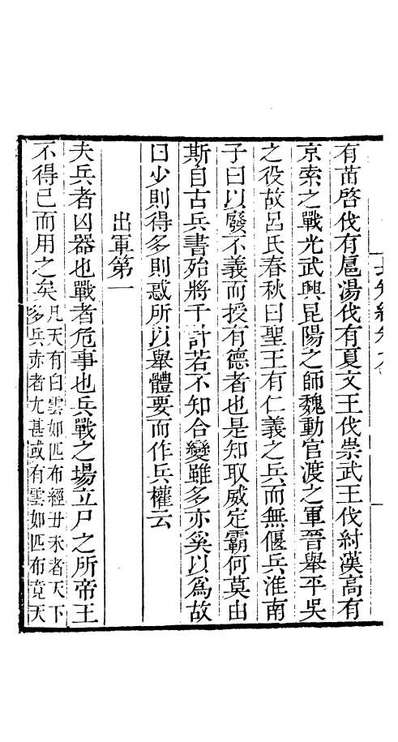 有苗啓伐有扈湯伐有夏文王伐崇武王伐紂漢高有
京索之戰光武興昆陽之師魏動官渡之軍晉舉平吳
之役故呂氏春秋曰聖王有仁義之兵而無偃兵淮南
子曰以廢不義而授有德者也是知取威定霸何莫由
斯自古兵書殆將千計若不知合變雖多亦奚以為故
曰少則得多則惑所以舉體要而作兵權云
出軍第一
夫兵者凶器也戰者危事也兵戰之場立尸之所帝王
不得已而用之矣凡天有白雲如匹布經丑未者天下
多兵赤者尤甚或有雲如匹布竟天